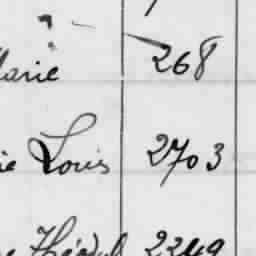 Marie 268
ie Louis 2703
2249